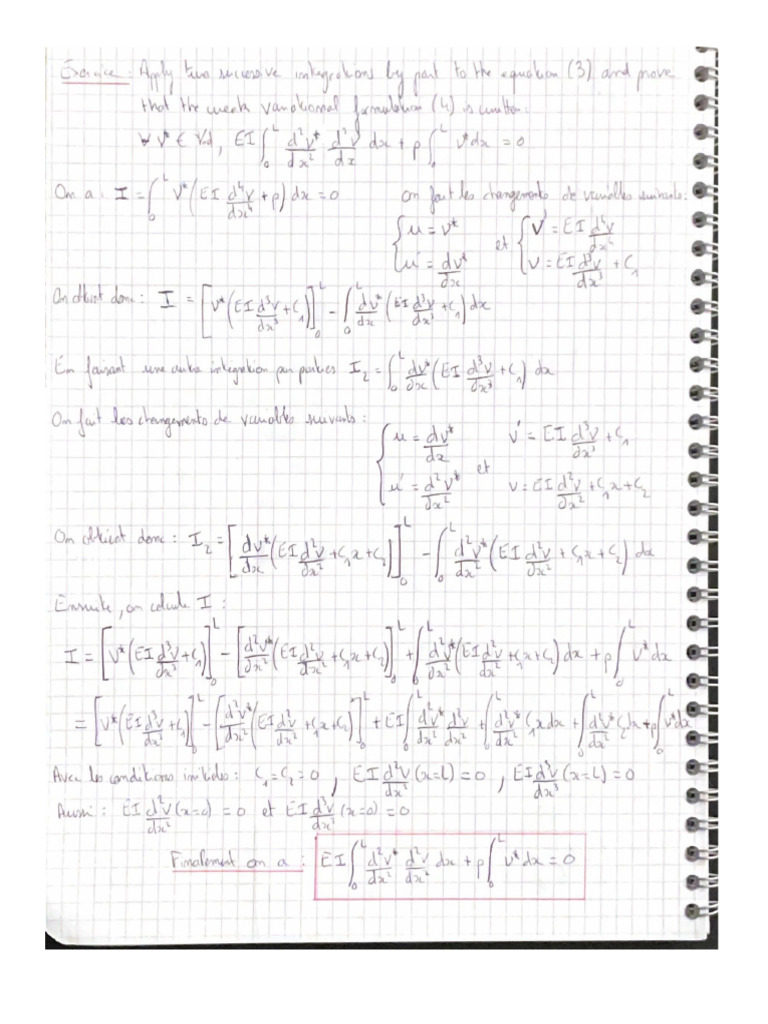 Exercice : Apply two successive integrations by part to the equation (3) and prove
that the weak variational formulation (4) is written:
∀ v* ∈ Vad, EI ∫₀ᴸ d²v*/dx² d²v/dx dx + p ∫₀ᴸ v* dx = 0
On a : I = ∫₀ᴸ v* (EI d⁴v/dx⁴ + p) dx = 0 On fait les changements de variables suivants :
{ u = v* ; u' = dv*/dx et { v' = EI d⁴v/dx⁴ ; v = EI d³v/dx³ + C₁
On obtient donc : I = [v* (EI d³v/dx³ + C₁)]₀ᴸ - ∫₀ᴸ dv*/dx (EI d³v/dx³ + C₁) dx
En faisant une autre integration par parties I₂ = ∫₀ᴸ dv*/dx (EI d³v/dx³ + C₁) dx
On fait les changements de variables suivants :
{ u = dv*/dx ; u' = d²v*/dx² et v' = EI d³v/dx³ + C₁ ; v = EI d²v/dx² + C₁x + C₂
On obtient donc : I₂ = [dv*/dx (EI d²v/dx² + C₁x + C₂)]₀ᴸ - ∫₀ᴸ d²v*/dx² (EI d²v/dx² + C₁x + C₂) dx
Ensuite, on calcule I :
I = [v* (EI d³v/dx³ + C₁)]₀ᴸ - [d²v*/dx² (EI d²v/dx² + C₁x + C₂)]₀ᴸ + ∫₀ᴸ d²v*/dx² (EI d²v/dx² + C₁x + C₂) dx + p ∫₀ᴸ v* dx
= [v* (EI d³v/dx² + C₁)]₀ᴸ - [d²v*/dx² (EI d²v/dx² + C₁x + C₂)]₀ᴸ + EI ∫₀ᴸ d²v*/dx² d²v/dx² + ∫₀ᴸ d²v*/dx² C₁x dx + ∫₀ᴸ d²v*/dx² C₂ dx + p ∫₀ᴸ v* dx
Avec les conditions initiales : C₁ = C₂ = 0 , EI d²v/dx² (x=L) = 0 , EI d³v/dx³ (x=L) = 0
Aussi : EI d²v/dx² (x=0) = 0 et EI d³v/dx³ (x=0) = 0
Finalement on a : EI ∫₀ᴸ d²v*/dx² d²v/dx² dx + p ∫₀ᴸ v* dx = 0